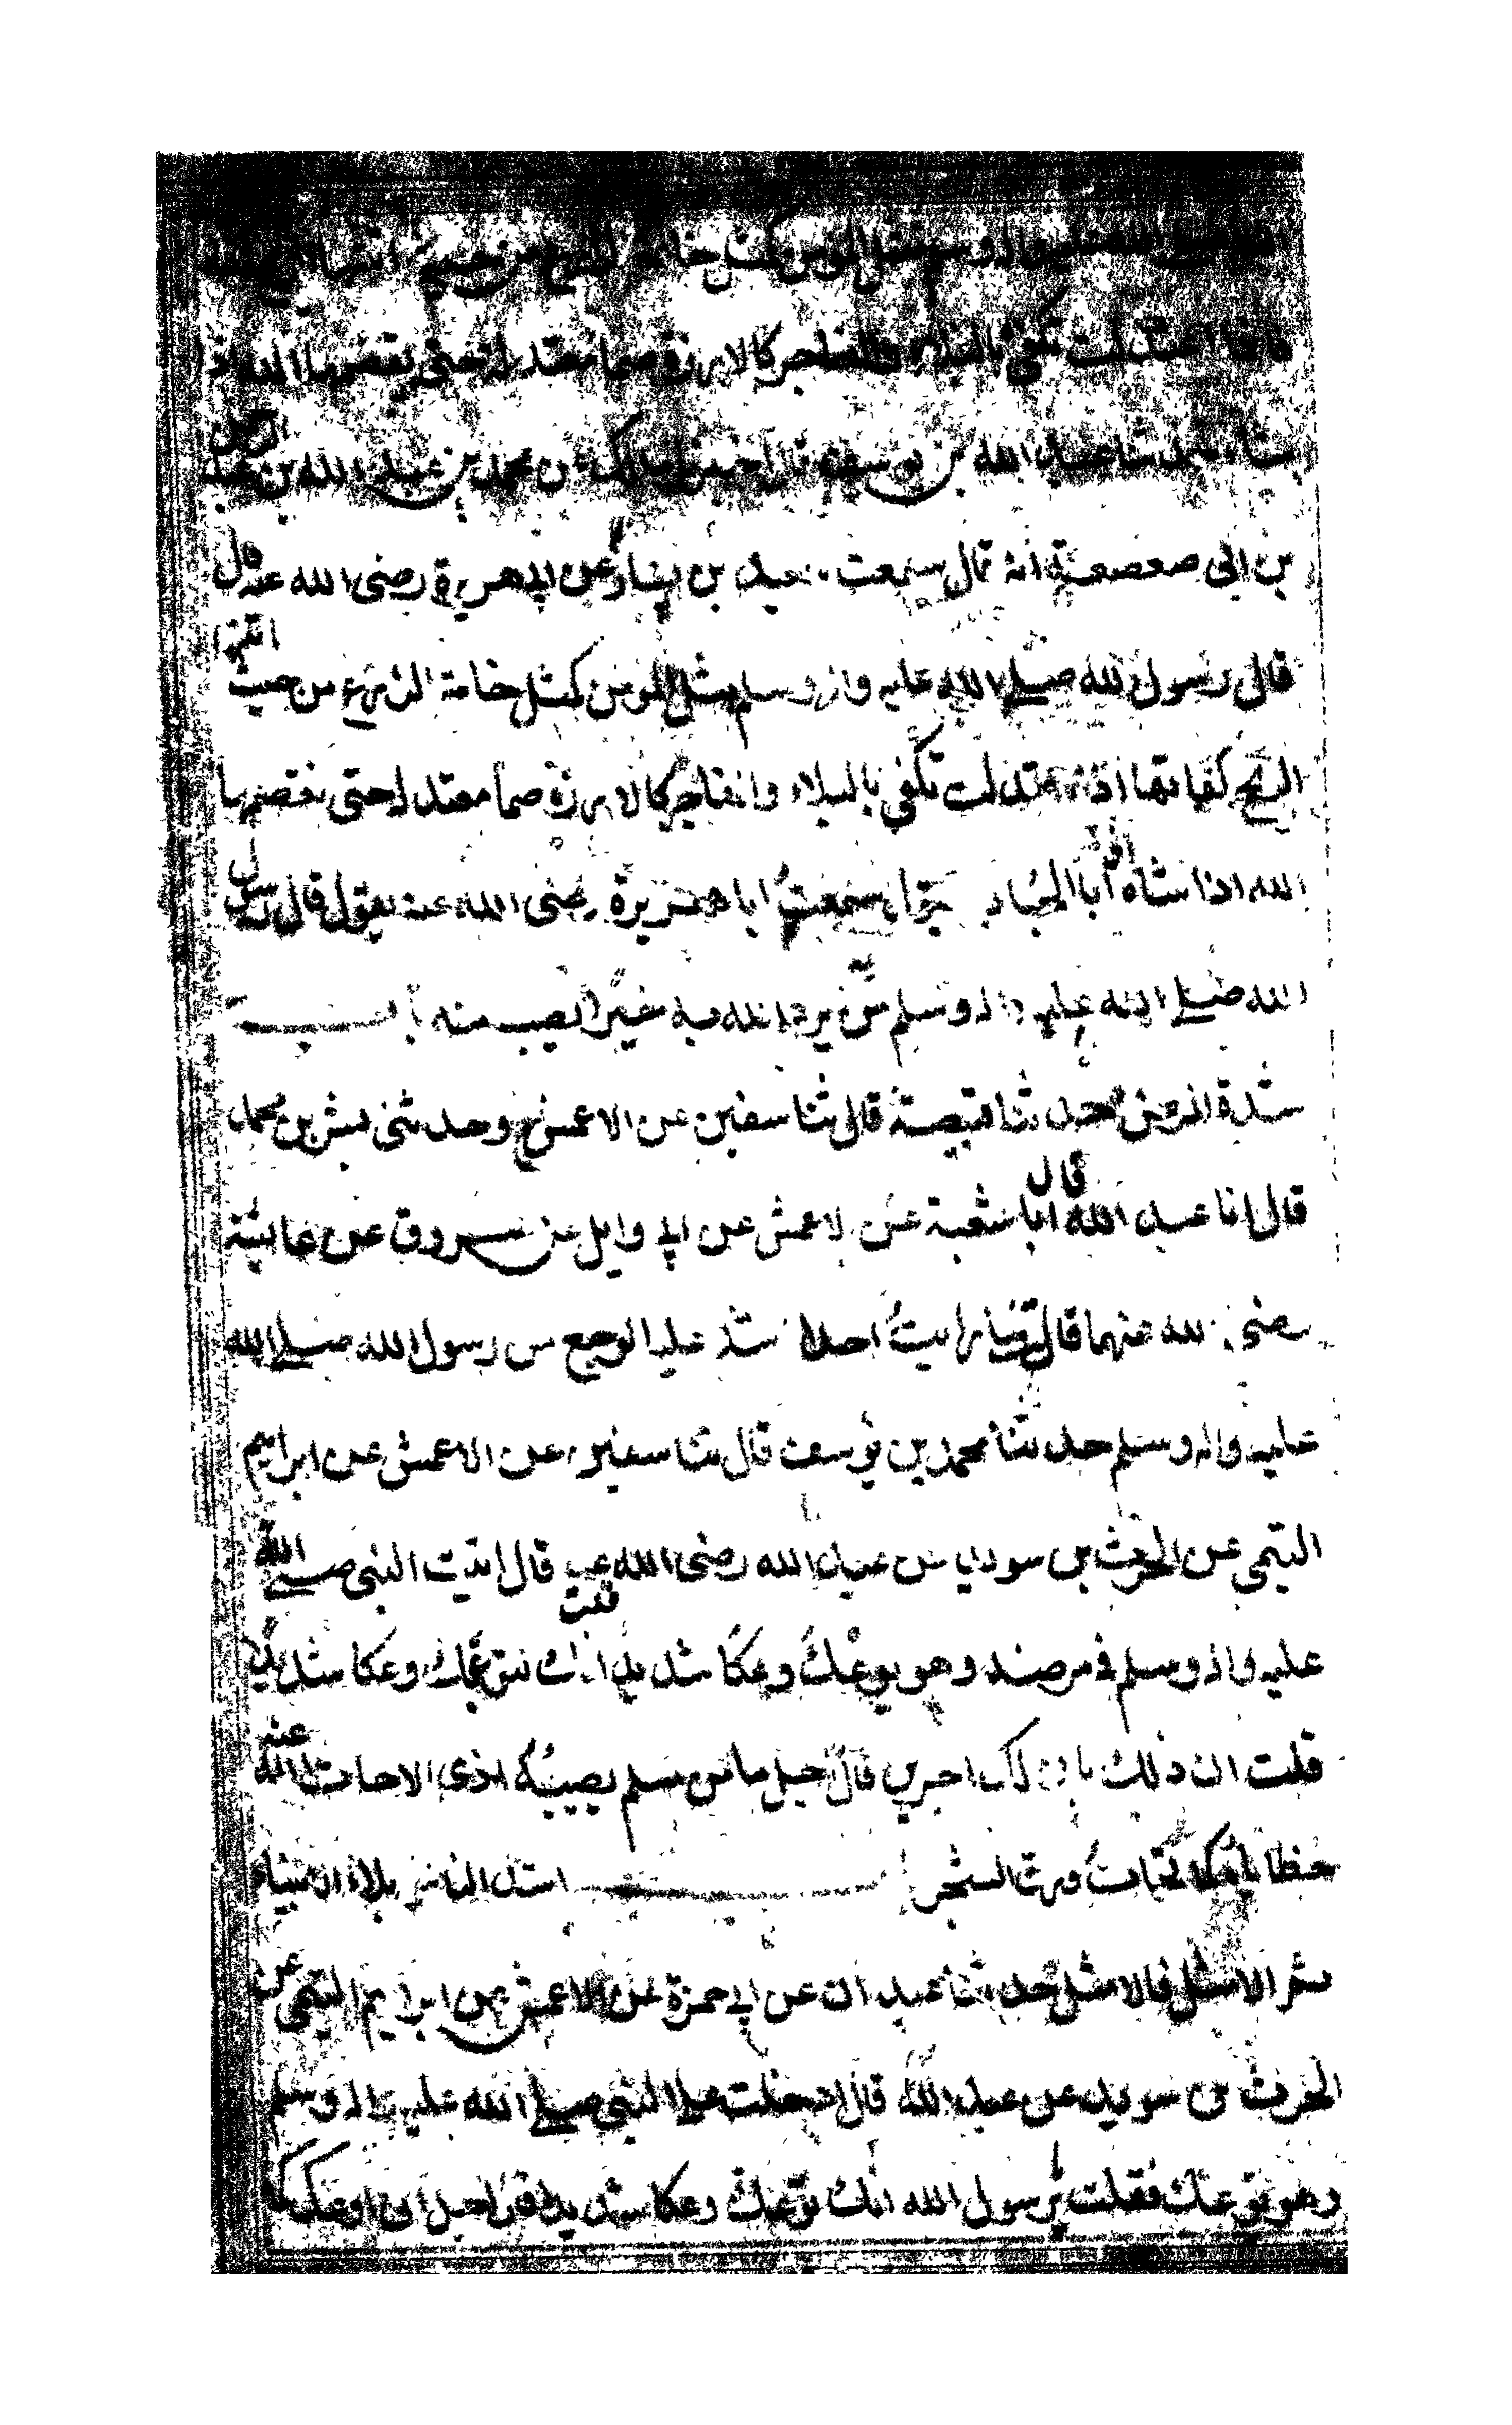 الله صلى الله عليه واله وسلم مثل المومن كمثل خامة الزرع من حيث اتتها الريح
فاذا اعتدلت تكفى بالبلاء والفاجر كالارزة صما معتدلة حتى يقصمها الله اذا
شاء حدثنا عبد الله بن يوسف قال اخبرنا مالك عن محمد بن عبد الله بن عبد الرحمن
بن ابى صعصعة انه قال سمعت سعيد بن يسار عن ابى هريرة رضى الله عنه قال
قال رسول الله صلى الله عليه واله وسلم مثل المومن كمثل خامة الزرع من حيث اتتها
الريح كفاتها اذا اعتدلت تكفى بالبلاء والفاجر كالارزة صما معتدلة حتى يقصمها
الله اذا شاء ابا الحباب يقول سمعت ابا هريرة رضى الله عنه يقول قال رسول
الله صلى الله عليه واله وسلم من يرد الله به خيرا يصب منه باب
شدة المرض حدثنا قبيصة قال ثنا سفين عن الاعمش ح وحدثنى بشر بن محمد
قال انا عبد الله قال انا شعبة عن الاعمش عن ابى وايل عن مسروق عن عائشة
رضى الله عنهما قالت ما رايت احدا اشد عليه الوجع من رسول الله صلى الله
عليه واله وسلم حدثنا محمد بن يوسف قال ثنا سفين عن الاعمش عن ابراهيم
التيمى عن الحرث بن سويد عن عبد الله رضى الله عنه قال اتيت النبى صلى الله
عليه واله وسلم فى مرضه وهو يوعك وعكا شديدا قلت انك لتوعك وعكا شديدا
قلت ان ذلك بان لك اجرين قال اجل ما من مسلم يصيبه اذى الا حات الله عنه
خطاياه كما تحات ورق الشجر باب اشد الناس بلاء الانبياء
ثم الامثل فالامثل حدثنا عبدان عن ابى حمزة عن الاعمش عن ابراهيم التيمى عن
الحرث بن سويد عن عبد الله قال دخلت على النبى صلى الله عليه واله وسلم
وهو يوعك فقلت يرسول الله انك توعك وعكا شديدا قال اجل انى اوعك كما